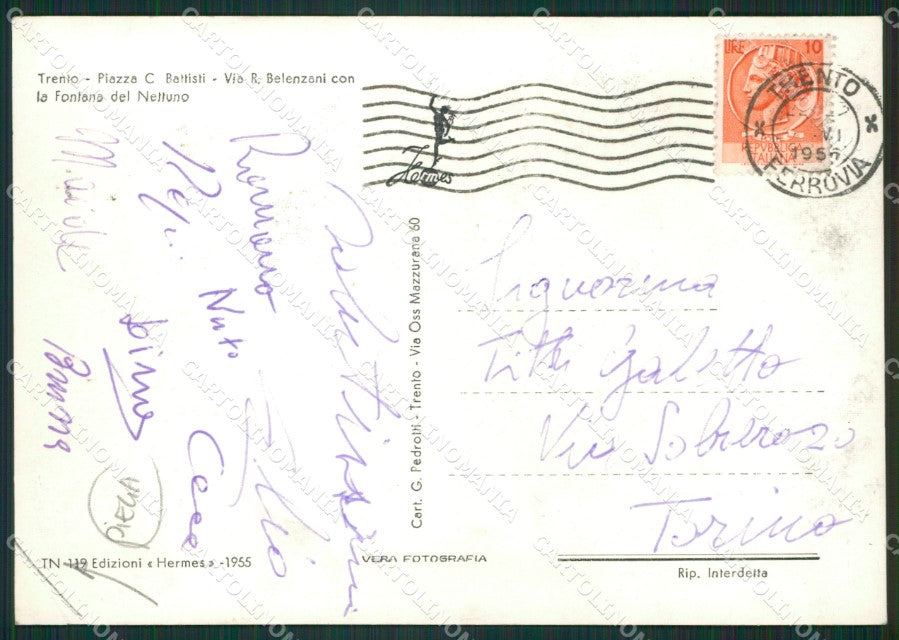 Trento - Piazza C Battisti - Via R. Belenzani con
la Fontana del Nettuno
Hermes
LIRE 10
REPVBBLICA
ITALIANA
TRENTO
VI
1956
FERROVIA
Romano
Nuto
Pepi
Cece
PIEGA
Cart. G. Pedrotti - Trento - Via Oss Mazzurana 60
Signorina
Titti Galetto
Via Sobrero 20
Torino
TN - 119 Edizioni « Hermes » - 1955
VERA FOTOGRAFIA
Rip. Interdetta
CARTOLINOMANIA